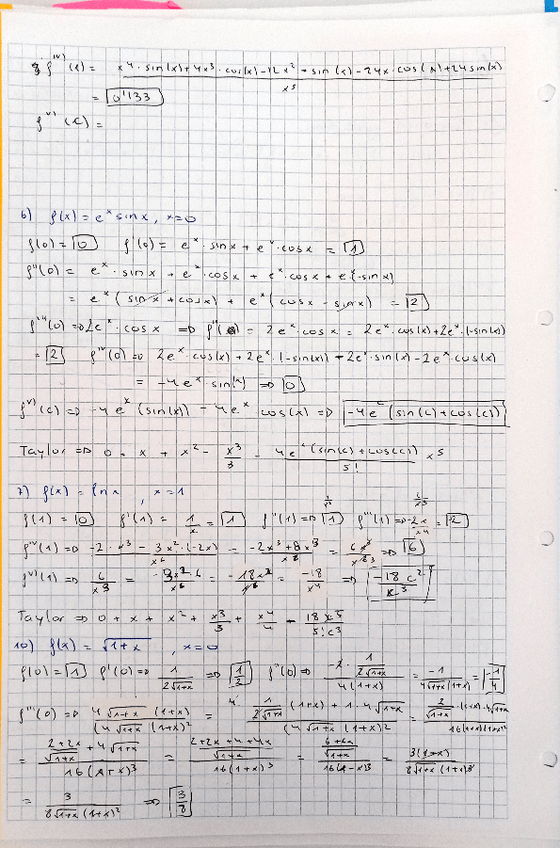 f^{IV)}(x) = x^4 · sin(x) + 4x^3 · cos(x) - 12x^2 · sin(x) - 24x · cos(x) + 24 sin(x)
x^5
= 0'133
f^{V)}(c) =
6) f(x) = e^x sin x, x=0
f(0) = 0 f'(0) = e^x · sin x + e^x · cos x = 1
f''(0) = e^x · sin x + e^x · cos x + e^x · cos x + e^x(-sin x)
= e^x (sin x + cos x) + e^x (cos x - sin x) = 2
f'''(0) => 2e^x · cos x => = 2e^x · cos x = 2e^x · cos(x) + 2e^x · (-sin(x))
= 2 f^{IV}(0) => 2e^x · cos(x) + 2e^x · (-sin(x)) - 2e^x · sin(x) - 2e^x · cos(x)
= -4e^x · sin(x) => 0
f^{V)}(c) => -4e^x (sin(x)) - 4e^x cos(x) => -4e^c (sin(c) + cos(c))
Taylor => 0 + x + x^2 - x^3/3 - 4e^c (sin(c) + cos(c))/5! x^5
7) f(x) = ln x, x=1
f(1) = 0 f'(1) = 1/x = 1 f''(1) => 1 f'''(1) => -2x/x^4 = 2
f^{IV}(1) => -2 · x^3 - 3x^2 · (-2x)/x^6 = -2x^3 + 8x^3/x^6 = 6x^3 => 6
f^{V)}(1) => 6/x^3 = = -18x^2/x^6 = -18/x^4 => -18c^2
Taylor => 0 + x + x^2 + x^3/3 + x^4/4 + 18x^5/5!c^3
10) f(x) = √1+x, x=0
f(0) = 1 f'(0) => 1/2√1+x => 1/2 f''(0) => 1/2√1+x / 4(1+x) = -1/4√1+x(1+x) = -1/4
f'''(0) => 4√1+x (1+x)/(4√1+x (1+x)^2 = 4 1/2√1+x (1+x) + 1·4√1+x/(4√1+x (1+x)^2 = 2/√1+x
= 2+2x/√1+x + 4√1+x / 16(1+x)^3 = 2+2x+4+4x/√1+x / 16(1+x)^3 = 6+6x/√1+x = 3(1+x)/8√1+x (1+x)^3
= 3/8√1+x (1+x)^2 => 3/8